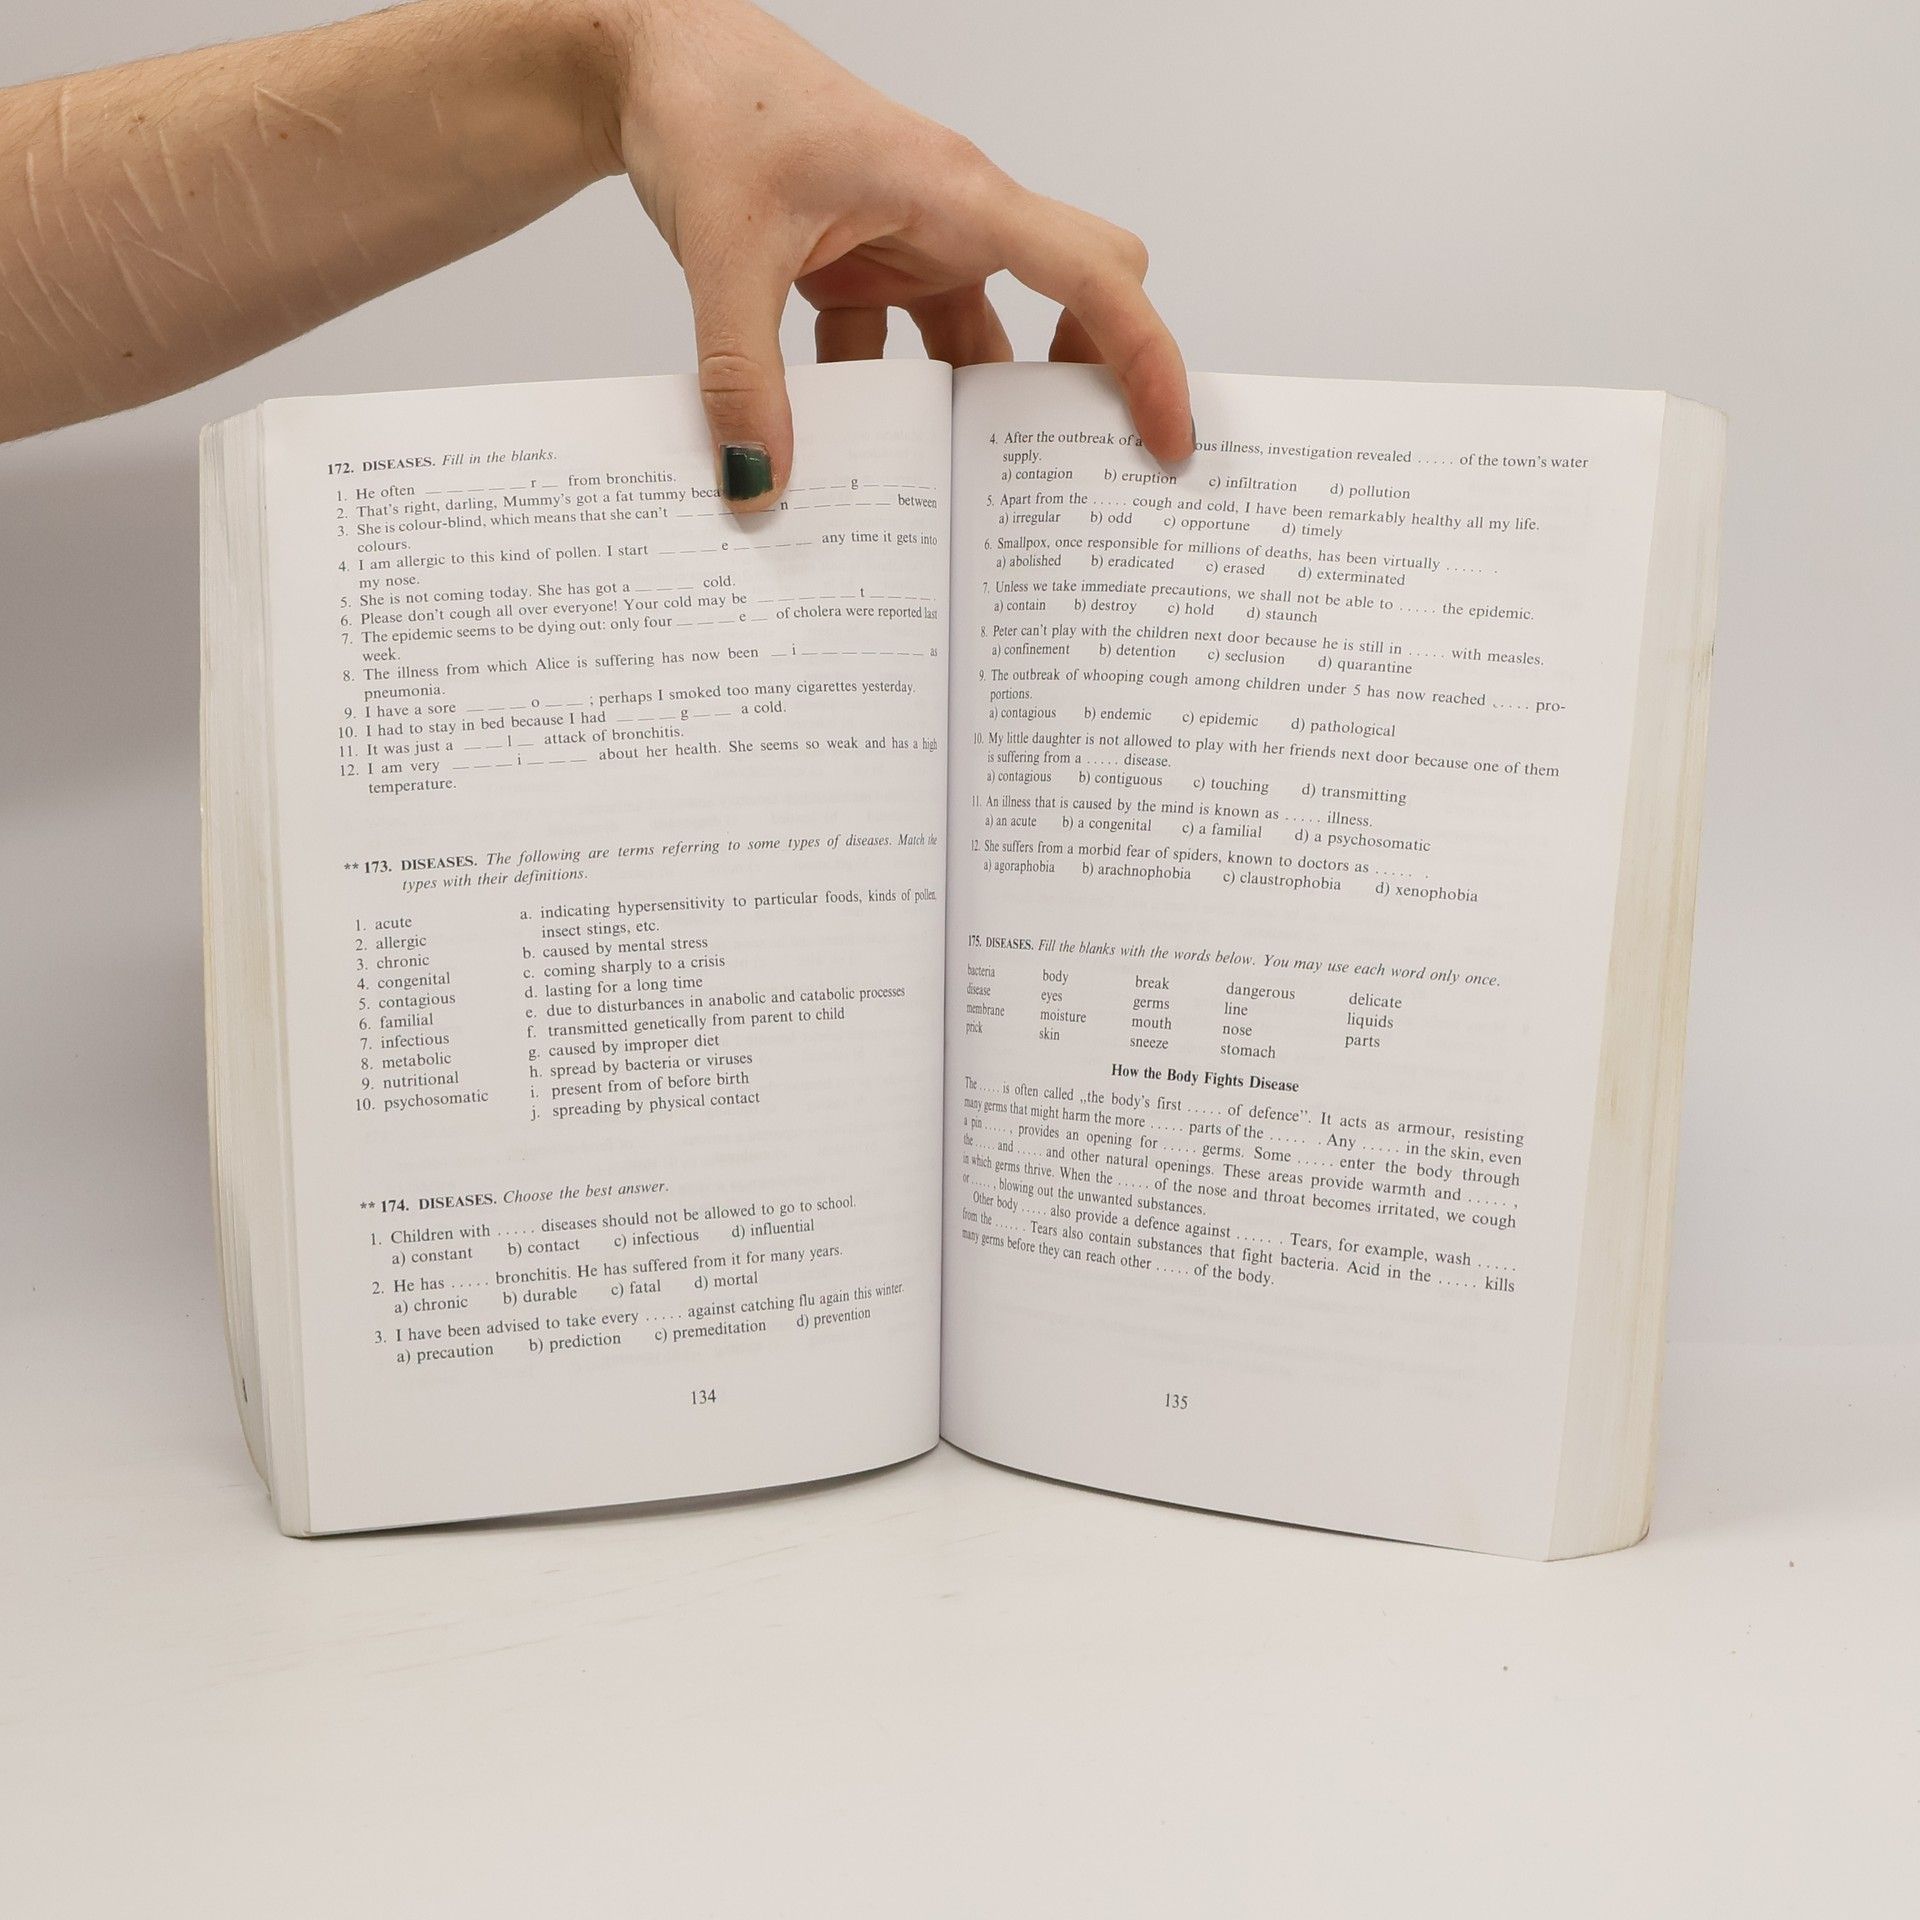 172. DISEASES. Fill in the blanks.
1. He often _ _ _ _ _ r _ from bronchitis.
2. That's right, darling, Mummy's got a fat tummy _ _ _ g _ _ _ _ .
3. She is colour-blind, which means that she can't _ _ _ _ _ n _ _ _ _ _ between
colours.
4. I am allergic to this kind of pollen. I start _ _ _ e _ _ _ _ any time it gets into
my nose.
5. She is not coming today. She has got a _ _ _ cold.
6. Please don't cough all over everyone! Your cold may be _ _ _ _ _ t _ _ _ _ .
7. The epidemic seems to be dying out: only four _ _ _ e _ of cholera were reported last
week.
8. The illness from which Alice is suffering has now been _ i _ _ _ _ _ _ _ as
pneumonia.
9. I have a sore _ _ _ o _ _ ; perhaps I smoked too many cigarettes yesterday.
10. I had to stay in bed because I had _ _ _ g _ _ a cold.
11. It was just a _ _ l _ attack of bronchitis.
12. I am very _ _ _ _ i _ _ _ about her health. She seems so weak and has a high
temperature.
** 173. DISEASES. The following are terms referring to some types of diseases. Match the
types with their definitions.
1. acute
2. allergic
3. chronic
4. congenital
5. contagious
6. familial
7. infectious
8. metabolic
9. nutritional
10. psychosomatic
a. indicating hypersensitivity to particular foods, kinds of pollen,
insect stings, etc.
b. caused by mental stress
c. coming sharply to a crisis
d. lasting for a long time
e. due to disturbances in anabolic and catabolic processes
f. transmitted genetically from parent to child
g. caused by improper diet
h. spread by bacteria or viruses
i. present from of before birth
j. spreading by physical contact
** 174. DISEASES. Choose the best answer.
1. Children with ..... diseases should not be allowed to go to school.
a) constant b) contact c) infectious d) influential
2. He has ..... bronchitis. He has suffered from it for many years.
a) chronic b) durable c) fatal d) mortal
3. I have been advised to take every ..... against catching flu again this winter.
a) precaution b) prediction c) premeditation d) prevention
134
4. After the outbreak of a illness, investigation revealed ..... of the town's water
supply.
a) contagion b) eruption c) infiltration d) pollution
5. Apart from the ..... cough and cold, I have been remarkably healthy all my life.
a) irregular b) odd c) opportune d) timely
6. Smallpox, once responsible for millions of deaths, has been virtually ..... .
a) abolished b) eradicated c) erased d) exterminated
7. Unless we take immediate precautions, we shall not be able to ..... the epidemic.
a) contain b) destroy c) hold d) staunch
8. Peter can't play with the children next door because he is still in ..... with measles.
a) confinement b) detention c) seclusion d) quarantine
9. The outbreak of whooping cough among children under 5 has now reached ..... pro-
portions.
a) contagious b) endemic c) epidemic d) pathological
10. My little daughter is not allowed to play with her friends next door because one of them
is suffering from a ..... disease.
a) contagious b) contiguous c) touching d) transmitting
11. An illness that is caused by the mind is known as ..... illness.
a) an acute b) a congenital c) a familial d) a psychosomatic
12. She suffers from a morbid fear of spiders, known to doctors as ..... .
a) agoraphobia b) arachnophobia c) claustrophobia d) xenophobia
175. DISEASES. Fill the blanks with the words below. You may use each word only once.
bacteria body break dangerous delicate
disease eyes germs line liquids
membrane moisture mouth nose parts
prick skin sneeze stomach
How the Body Fights Disease
The ..... is often called „the body's first ..... of defence”. It acts as armour, resisting
many germs that might harm the more ..... parts of the ..... . Any ..... in the skin, even
a pin ....., provides an opening for ..... germs. Some ..... enter the body through
the ..... and ..... and other natural openings. These areas provide warmth and .....,
in which germs thrive. When the ..... of the nose and throat becomes irritated, we cough
or ....., blowing out the unwanted substances.
Other body ..... also provide a defence against ..... . Tears, for example, wash .....
from the ..... . Tears also contain substances that fight bacteria. Acid in the ..... kills
many germs before they can reach other ..... of the body.
135